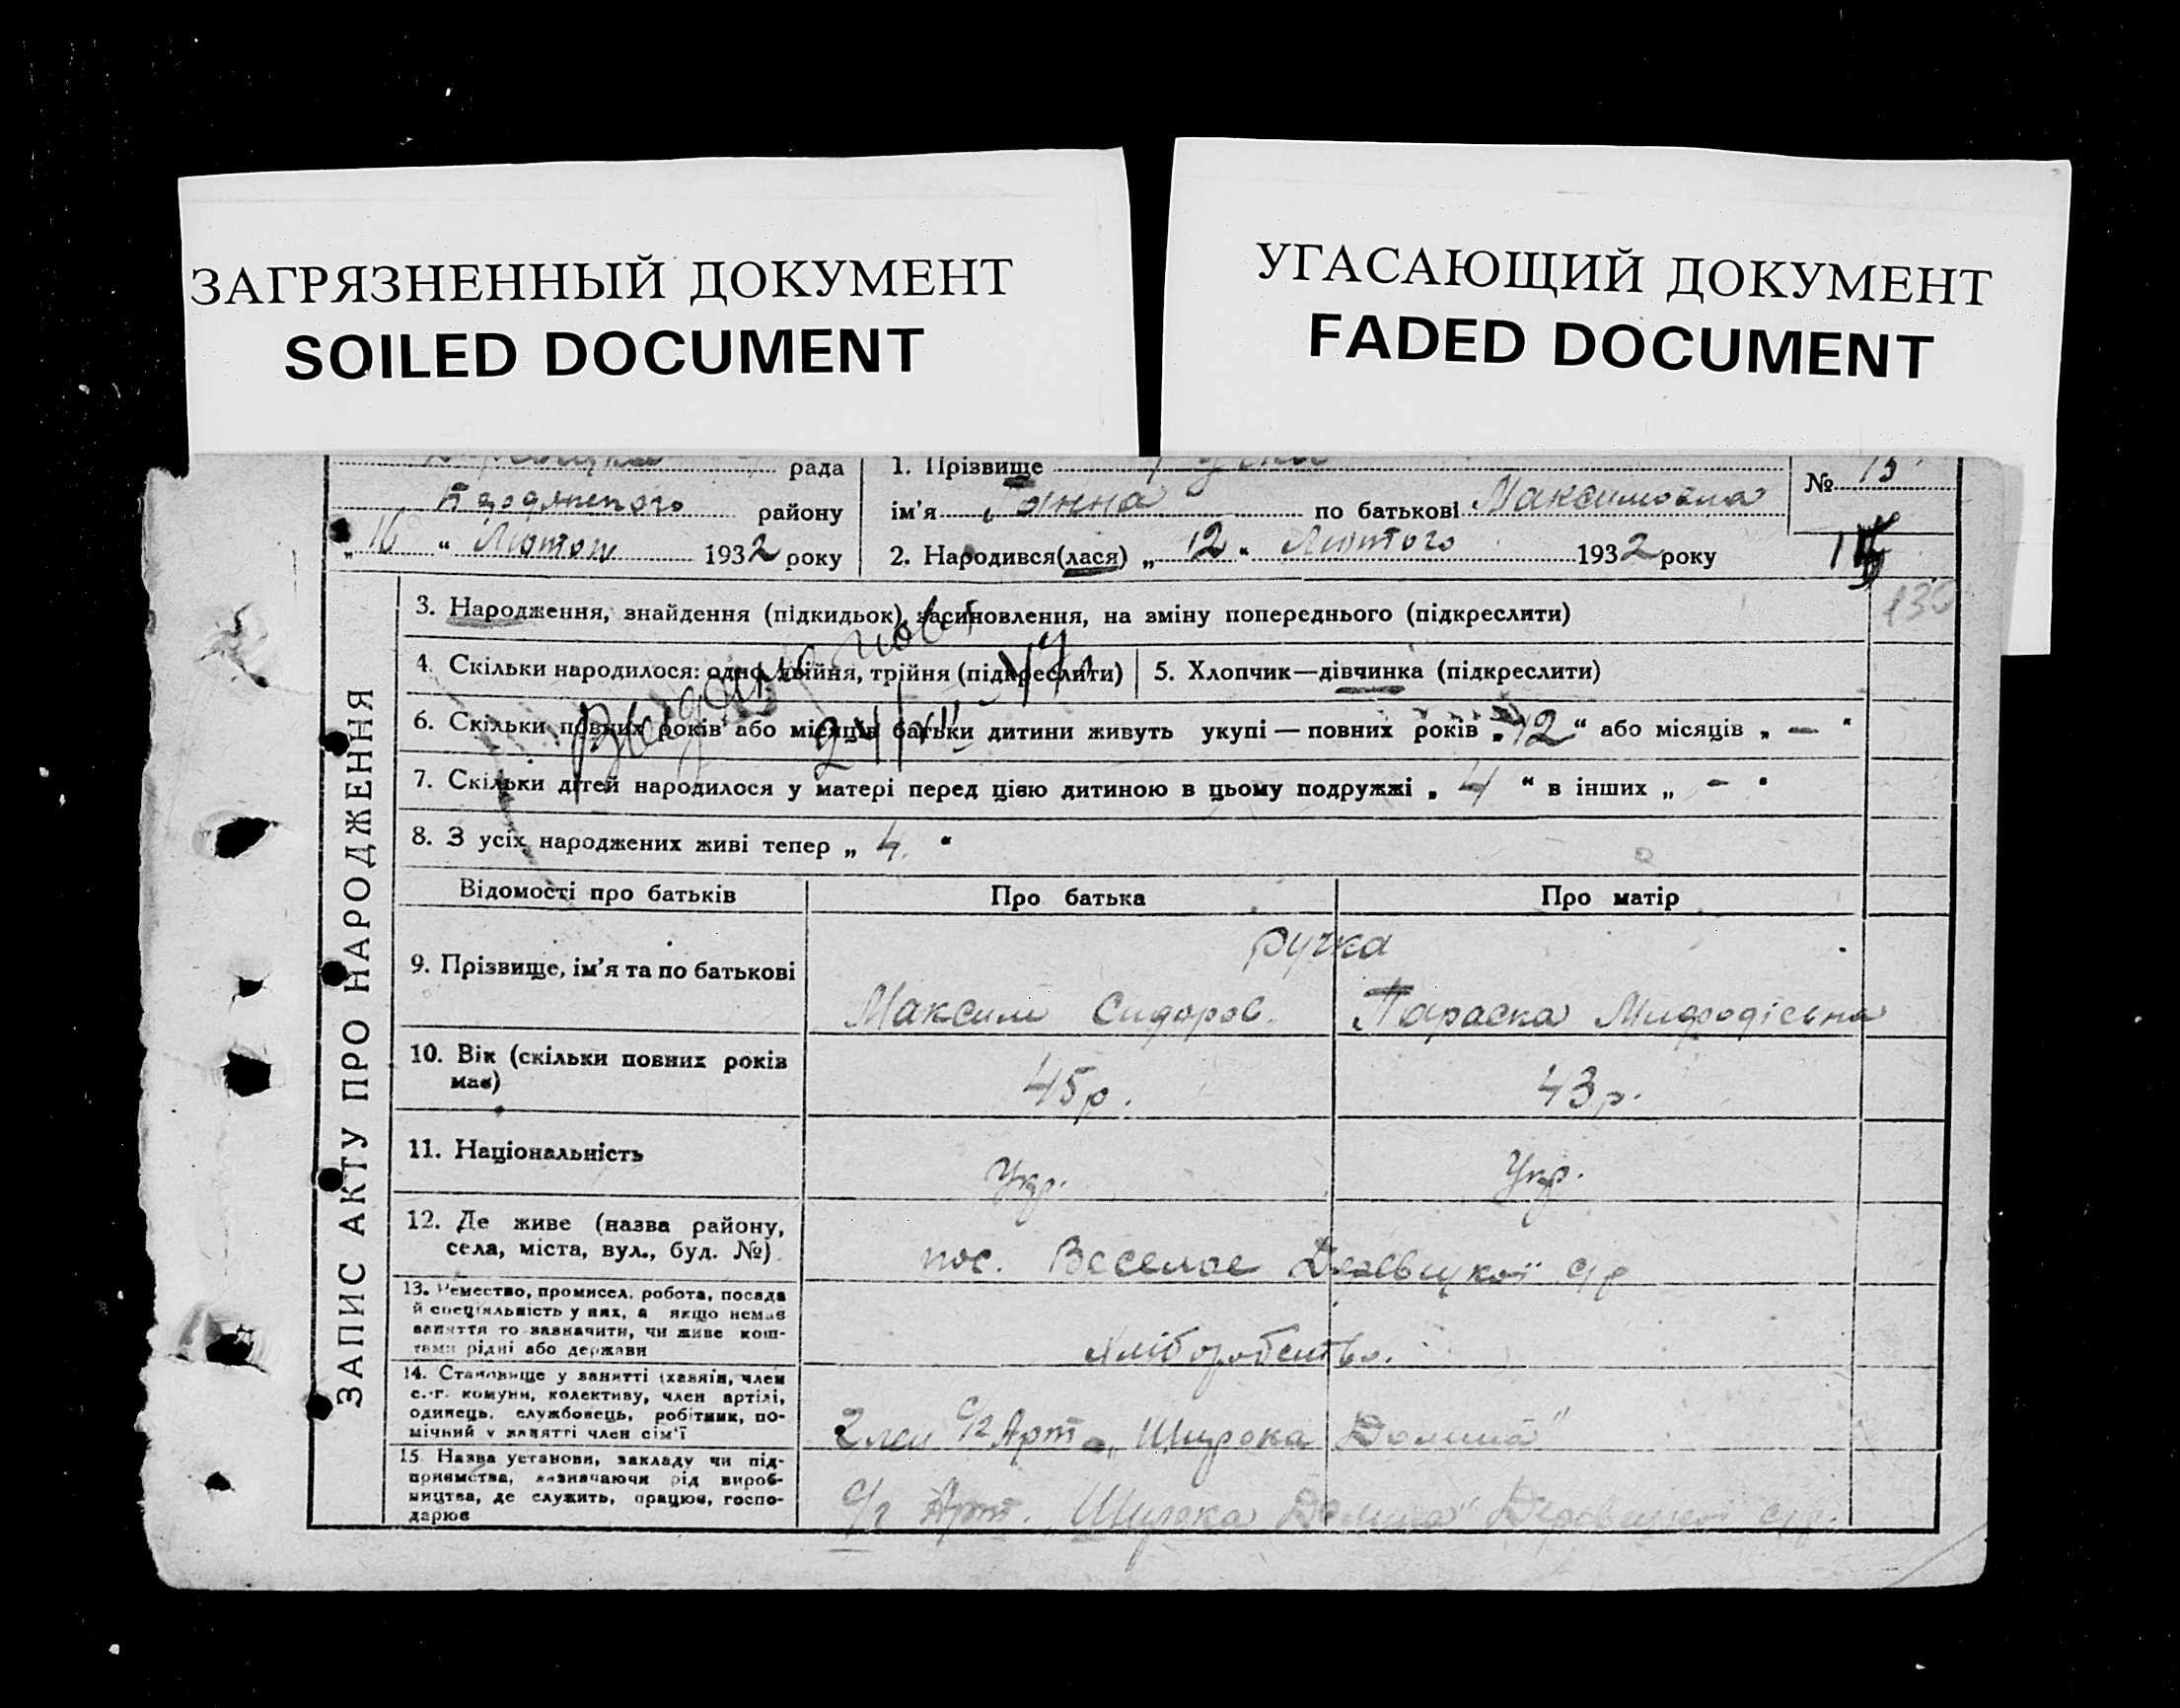 ЗАГРЯЗНЕННЫЙ ДОКУМЕНТ
SOILED DOCUMENT
УГАСАЮЩИЙ ДОКУМЕНТ
FADED DOCUMENT
рада
району
„ 16 “ Лютого 1932 року
1. Прізвище
ім'я Ганна по батькові Максимовна
2. Народився(лася) „ 12 “ Лютого 1932 року
№ 15
130
ЗАПИС АКТУ ПРО НАРОДЖЕННЯ
3. Народження, знайдення (підкидьок), засиновлення, на зміну попереднього (підкреслити)
4. Скільки народилося: одно, двійня, трійня (підкреслити)
5. Хлопчик—дівчинка (підкреслити)
6. Скільки повних років або місяців батьки дитини живуть укупі — повних років „ 12 “ або місяців „ — “
7. Скільки дітей народилося у матері перед цією дитиною в цьому подружжі „ 4 “ в інших „ - “
8. З усіх народжених живі тепер „ 4. “
Відомості про батьків
Про батька
Про матір
9. Прізвище, ім'я та по батькові
Ручка
Максим Сидоров.
Параска Мифодієвна
10. Вік (скільки повних років
має)
45 р.
43 р.
11. Національність
Укр.
Укр.
12. Де живе (назва району,
села, міста, вул., буд. №)
пос. Веселое с/р
13. Ремество, промисел, робота, посада
й спеціяльність у них, а якщо немає
заняття то зазначити, чи живе кош-
тами рідні або держави
Хліборобство.
14. Становище у занятті (хазяїн, член
с.-г. комуни, колективу, член артілі,
одинець, службовець, робітник, по-
мічний у занятті член сім'ї
Член с/г Арт „Широка Долина"
15. Назва установи, закладу чи під-
приємства, зазначаючи рід вироб-
ництва, де служить, працює, госпо-
дарює
с/г Арт. „Широка Долина" с/р.